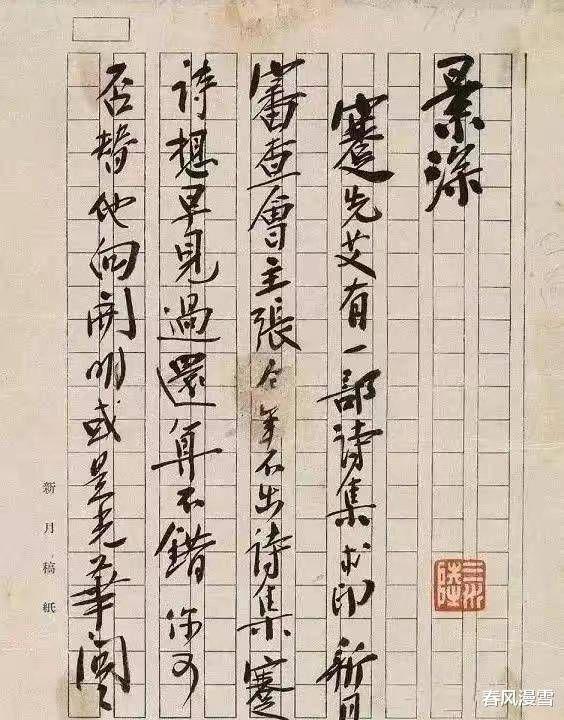 景深
蹇先艾有一部詩集求印新月
審查會主張今年不出詩集蹇
詩想早見過還算不錯你可
否替他向開明或是光華問〻
新月稿紙
春风漫雪